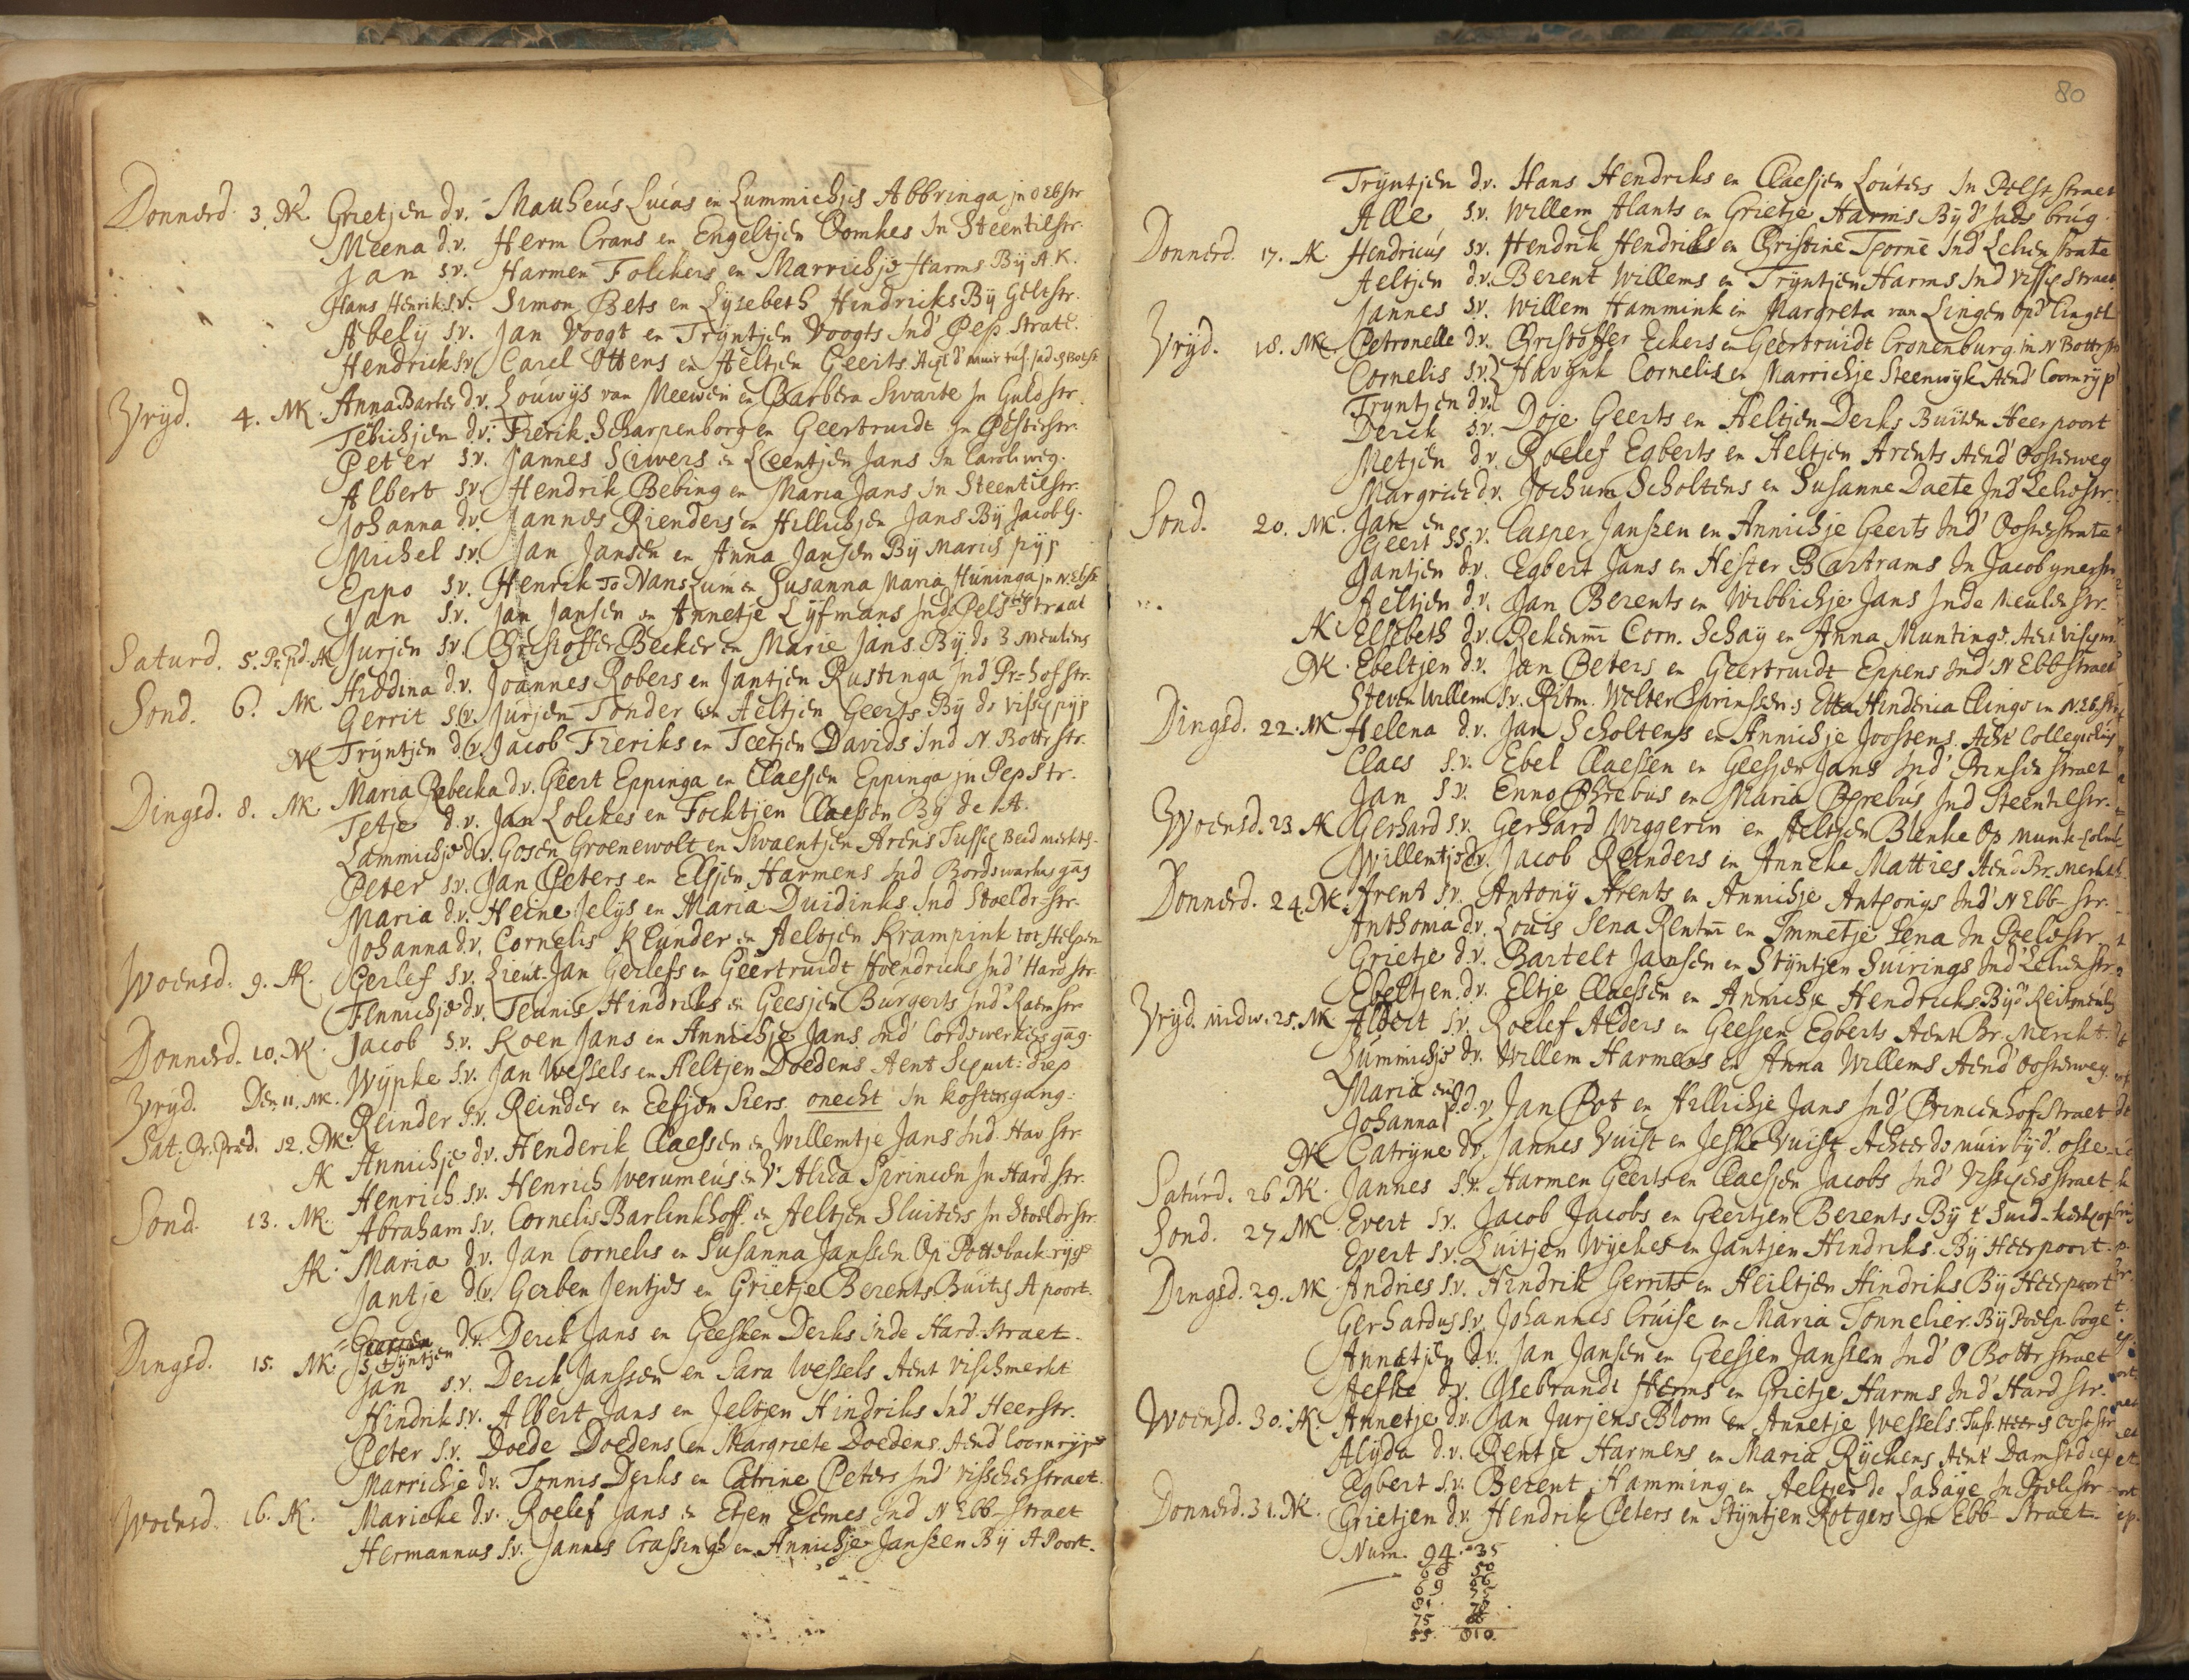 Donnerd. 3. NK. Grietjen d.v. Matheus Lucas en Lummichjes Abbringa in O Ebstr
Meena d.v. Herm Crans en Engeltjen Oomkes In Steentilstr.
Jan s.v. Harmen Folckers en Marrichje Harms By A.K.
Hans Henrik s.v. Simon Bets en Lysebeth Hindricks By Geltstr.
Abely s.v. Jan Voogt en Tryntjen Voogts Ind' Pep. Strate.
Hendrick s.v. Carel Ottens en Aeltjen Geerts
Vryd. 4. NK. Anna Barber d.v. Louwijs van Meewen en Barbera Swarte In Guldstr.
Tebichjen d.v. Frerik Scharpenborg en Geertruidt In Pelsterstr.
Peter s.v. Jannes Suwers en Leentjen Jans In Caroliweg.
Albert s.v. Hendrik Bebing en Maria Jans In Steentilstr.
Johanna d.v. Jannes Rienders en Hillichjen Jans By Jacob G.
Michel s.v. Jan Jansen en Anna Jansen By Maris pijp
Eppo s.v. Henrik To Nanszum en Susanna Maria Huninga In N. Ebstr
Jan s.v. Jan Jansen en Annetje Lyfmans Ind' Pelsterstraat
Saturd. 5. Pr. pd. AK Jurjen s.v. Christoffer Becker en Marie Jans By de 3 Meulens
Sond. 6. NK Hiddina d.v. Joannes Robers en Jantjen Rustinga Ind Pr=hofstr.
Gerrit s.v. Jurjen Tonder en Aeltjen Geerts By de Visschpijp
NK Tryntjen d.v. Jacob Freriks en Teetjen Davids Ind N. Bottrstr.
Dingsd. 8. NK. Maria Rebecka d.v. Geert Eppinga en Claesjen Eppinga in Pepstr.
Tetje d.v. Jan Lolckes en Focktjen Claessen By de A.
Lammichje d.v. Gosen Groenewolt en Swaentjen Arens Tussch Beid merkts.
Peter s.v. Jan Peters en Elsjen Harmens Ind Cordswarkers gang
Maria d.v. Heine Jelijs en Maria Duidinks Ind Stoeldr-str.
Johanna d.v. Cornelis Klunder en Aeltjen Krampink tot Helpen
Woensd. 9. AK. Gerlef s.v. Lieut. Jan Gerlefs en Geertruidt Hoendricks Ind' Hardstr.
Fennichje d.v. Teunis Hindriks en Geesjen Burgerts Ind' Ravenstr
Donnerd. 10. NK. Jacob s.v. Koen Jans en Annichje Jans Ind' Cordswerkers gang.
Vryd. Den 11. NK. Wypke s.v. Jan Wessels en Aeltjen Doedens Aent Schuit: diep
Sat. Pr. Præd. 12. NK. Reinder s.v. Reinder en Eefjen Siers. onecht In kostersgang:
AK Annichje d.v. Henderik Claessen en Willemtje Jans Ind. Hav str.
Henrich s.v. Henrich Iverumeus en Alida Sprincen In Hardstr.
Sond. 13. NK. Abraham s.v. Cornelis Barlinkhoff en Aeltjen Sluiters In Stoeldrstr.
AK. Maria d.v. Jan Cornelis en Susanna Janssen Op Pottebackrijge
Jantje d.v. Gerben Jentjes en Grietje Berents Buiten A poort.
Styntjen d.v. Derck Jans en Geesken Derks inde Hard. Straet.
Dingsd. 15. NK. Jan s.v. Derck Janssen en Sara Wessels Aent Vischmerkt
Hindrik s.v. Albert Jans en Jeltjen Hindriks Ind Heerstr.
Peter s.v. Doede Doedens en Margriete Doedens Aend' Coornrijp
Marrichje d.v. Tonnis Derks en Catrine Peters Ind' Visscherstraet.
Woensd. 16. AK. Marieke d.v. Roelef Jans en Etjen Eemes Ind N Ebb-straet
Hermannus s.v. Jannes Crassingh en Annichje Janszen By A Poort.
80
Tryntjen d.v. Hans Hendriks en Claesjen Louters In Pelst straet
Alle s.v. Willem Hants en Grietje Harms By d' brug.
Donnerd. 17. AK. Hendricus s.v. Hendrik Hendriks en Christine Ind' Lelienstrate
Aeltjen d.v. Berent Willems en Tryntjen Harms Ind Vissch Straet.
Jannes s.v. Willem Hammink en Margreta van Lingen Opd' Cingel
Vryd. 18. NK. Petronelle d.v. Christoffer Eckers en Geertruidt Cronenburg. in N Bottrstr
Cornelis s.v. Havynk Cornelis en Marrichje Steenwyk Aend' Coornrijp
Tryntjen d.v.
Derck s.v. Doje Geerts en Aeltjen Derks Buiten Heerpoort
Metjen d.v. Roelef Egberts en Aeltjen Arents Aend' Oosterweg
Margriet d.v. Jochum Scholtens en Susanne Daete Ind' Leliestr.
Sond. 20. NK. Jan en
Geert ss.v. Casper Janszen en Annichje Geerts Ind' Oosterstrate
Jantjen d.v. Egbert Jans en Hester Bartrams In Jacobynerstr
Aeltjen d.v. Jan Berents en Wibbichje Jans Inde Meulenstr.
AK. Elsebeth d.v. Rekenmr Corn. Schay en Anna Muntinge.
NK. Ebeltjen d.v. Jan Peters en Geertruidt Eppens Ind' N Ebbstraet
Steven Willem s.v. Ritm. Wolter en Etta Hinderica Clinge in N. Eb.str
Dingsd. 22. NK Helena d.v. Jan Scholtens en Annichje Joostens. Acht' Collegiehuys
Claes s.v. Ebel Claessen en Geesjen Jans Ind' Prinsen straet
Jan s.v. Enno Phrebus en Maria Phrebus Ind Steentilstr.
Woensd. 23. AK Gerhard s.v. Gerhard Wiggerin en Aeltjen Blenke Op Munk-holm
Willemtje d.v. Jacob Reinders en Anneke Matties Aend Br. Merkt
Donnerd. 24. NK Arent s.v. Antony Arents en Annichje Anthonys Ind' N Ebb-str.
Anthoma d.v. Louis Sena Rentmr en Immetje Sena In Poelestr
Grietje d.v. Bartelt Jansen en Styntjen Suirings Ind' Lelienstr
Ebeltjen d.v. Eltje Claessen en Annichje Hendricks By d' Reitmeulen
Vryd. midw. 25. NK. Albert s.v. Roelef Alders en Geessen Egberts Aent Br. Merckt.
Lummichje d.v. Willem Harmens en Anna Willems Aend' Oosterweg.
Maria en
Johanna d.d.v. Jan Pot en Hillichje Jans Ind' Princenhofstraet
NK Catryne d.v. Jannes Vuist en Jeske Vuist Achter de muir by d' osse
Saturd. 26 NK. Jannes s.v. Harmen Geerts en Claesjen Jacobs Ind' Visschersstraet
Sond. 27 NK. Evert s.v. Jacob Jacobs en Geertjen Berents By t' Suid-kerkhof
Evert s.v. Luitjen Wyckes en Jantjen Hindriks. By Heerpoort.
Dingsd. 29. NK. Andries s.v. Hindrik Gerrits en Heiltjen Hindriks By Heerpoort
Gerhardus s.v. Johannes Cruise en Maria Tonnelier. By Poelp boge
Annetjen d.v. Jan Jansen en Geesjen Janszen Ind' O Bottr straet
Aefke d.v. Ysebrandt Herms en Grietje Harms Ind' Hardstr.
Woensd. 30. AK. Annetje d.v. Jan Jurjens Blom en Annetje Wessels.
Alyda d.v. Rentje Harmens en Maria Ryckens Aent Damsterdiep
Egbert s.v. Berent Hamming en Aeltjen de Lahaye In Poelestr
Donnerd. 31. NK. Grietjen d.v. Hendrik Peters en Styntjen Rotgers In Ebb-straet.
Num. 94. 35
66 50
69 66
81. 75
75
55. 810.